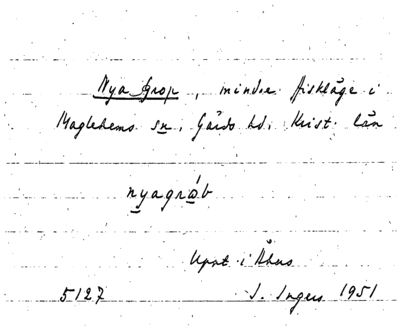 Nya Grop, mindre fiskläge i
Maglehems sn, Gärds hd, Krist. län
nyagráb
Uppt. i Åhus
5127 I. Ingers 1951